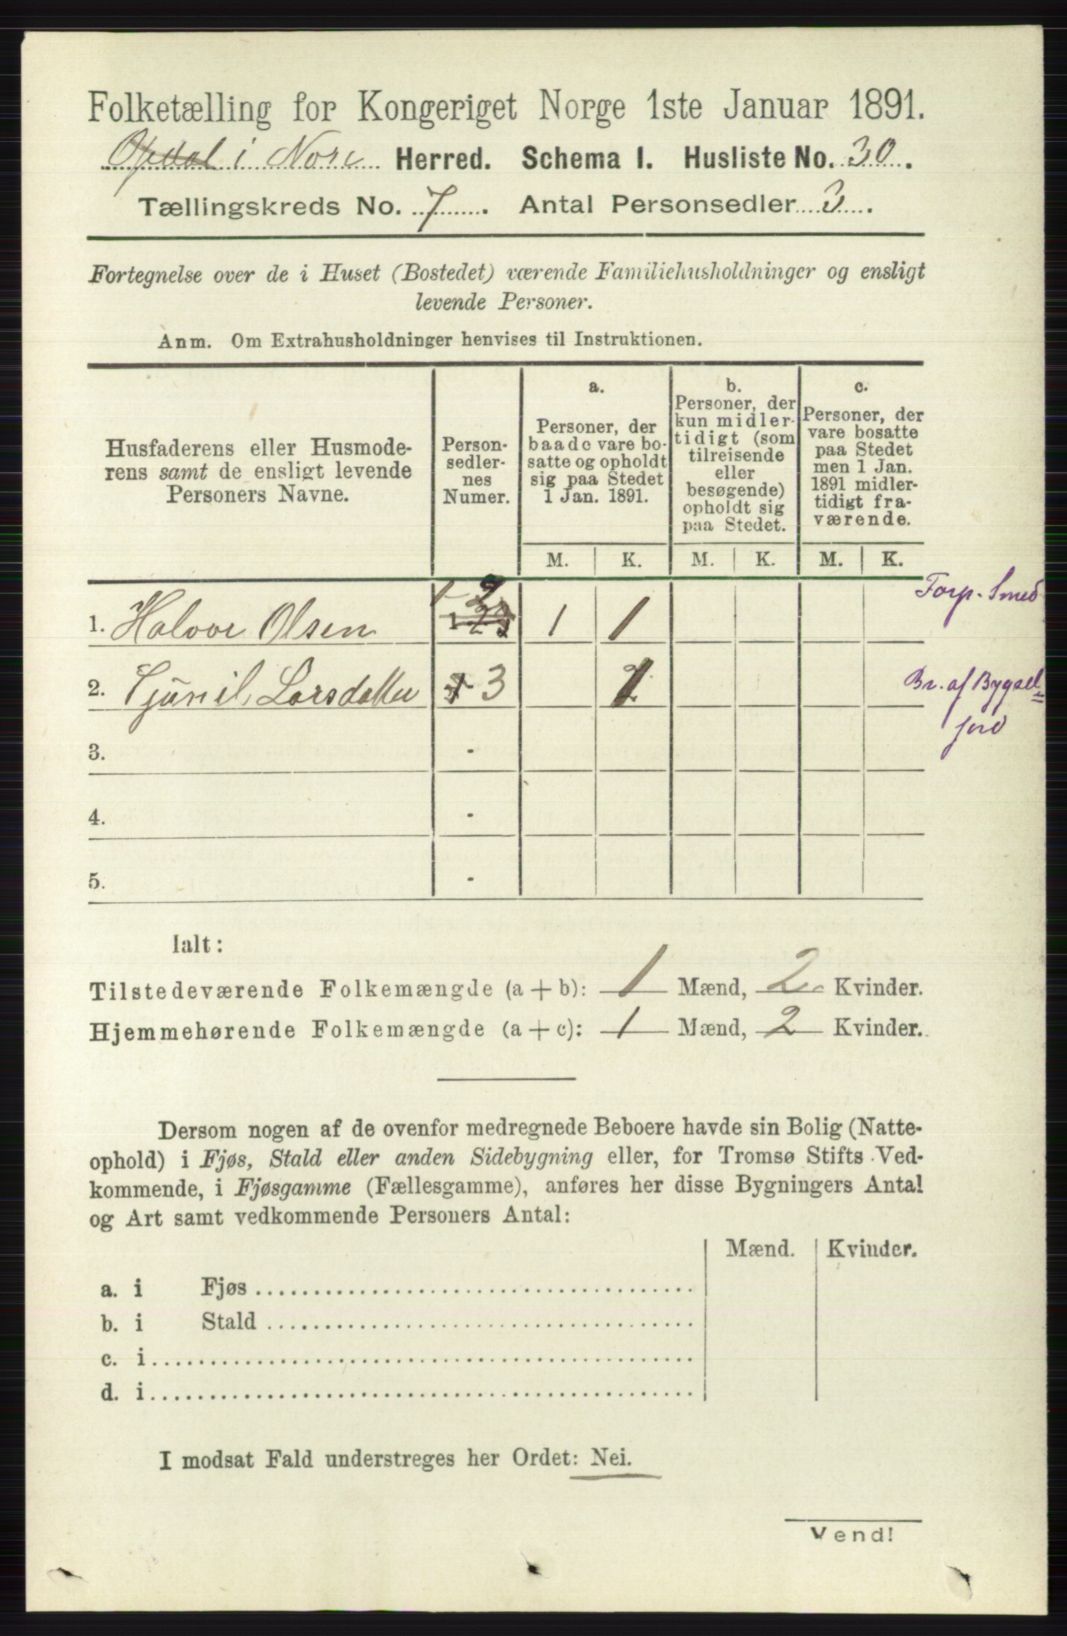 Folketælling for Kongeriget Norge 1ste Januar 1891.
Opdal i Nore Herred. Schema I. Husliste No. 30.
Tællingskreds No. 7. Antal Personsedler 3.
Fortegnelse over de i Huset (Bostedet) værende Familiehusholdninger og ensligt
levende Personer.
Anm. Om Extrahusholdninger henvises til Instruktionen.
Husfaderens eller Husmode-
rens samt de ensligt levende
Personers Navne.
Person-
sedler-
nes
Numer.
a.
Personer, der
baade vare bo-
satte og opholdt
sig paa Stedet
1 Jan. 1891.
b.
Personer, der
kun midler-
tidigt (som
tilreisende
eller
besøgende)
opholdt sig
paa Stedet.
c.
Personer, der
vare bosatte
paa Stedet
men 1 Jan.
1891 midler-
tidigt fra-
værende.
M. K. M. K. M. K.
1. Halvor Olsen 1-2 1 1 Torp. Smed
2. 3 Br. af Bygsel
jord
3. -
4. -
5. -
Ialt:
Tilstedeværende Folkemængde (a + b): 1 Mænd, 2 Kvinder.
Hjemmehørende Folkemængde (a + c): 1 Mænd, 2 Kvinder.
Dersom nogen af de ovenfor medregnede Beboere havde sin Bolig (Natte-
ophold) i Fjøs, Stald eller anden Sidebygning eller, for Tromsø Stifts Ved-
kommende, i Fjøsgamme (Fællesgamme), anføres her disse Bygningers Antal
og Art samt vedkommende Personers Antal:
Mænd. Kvinder.
a. i Fjøs
b. i Stald
c. i
d. i
I modsat Fald understreges her Ordet: Nei.
Vend!